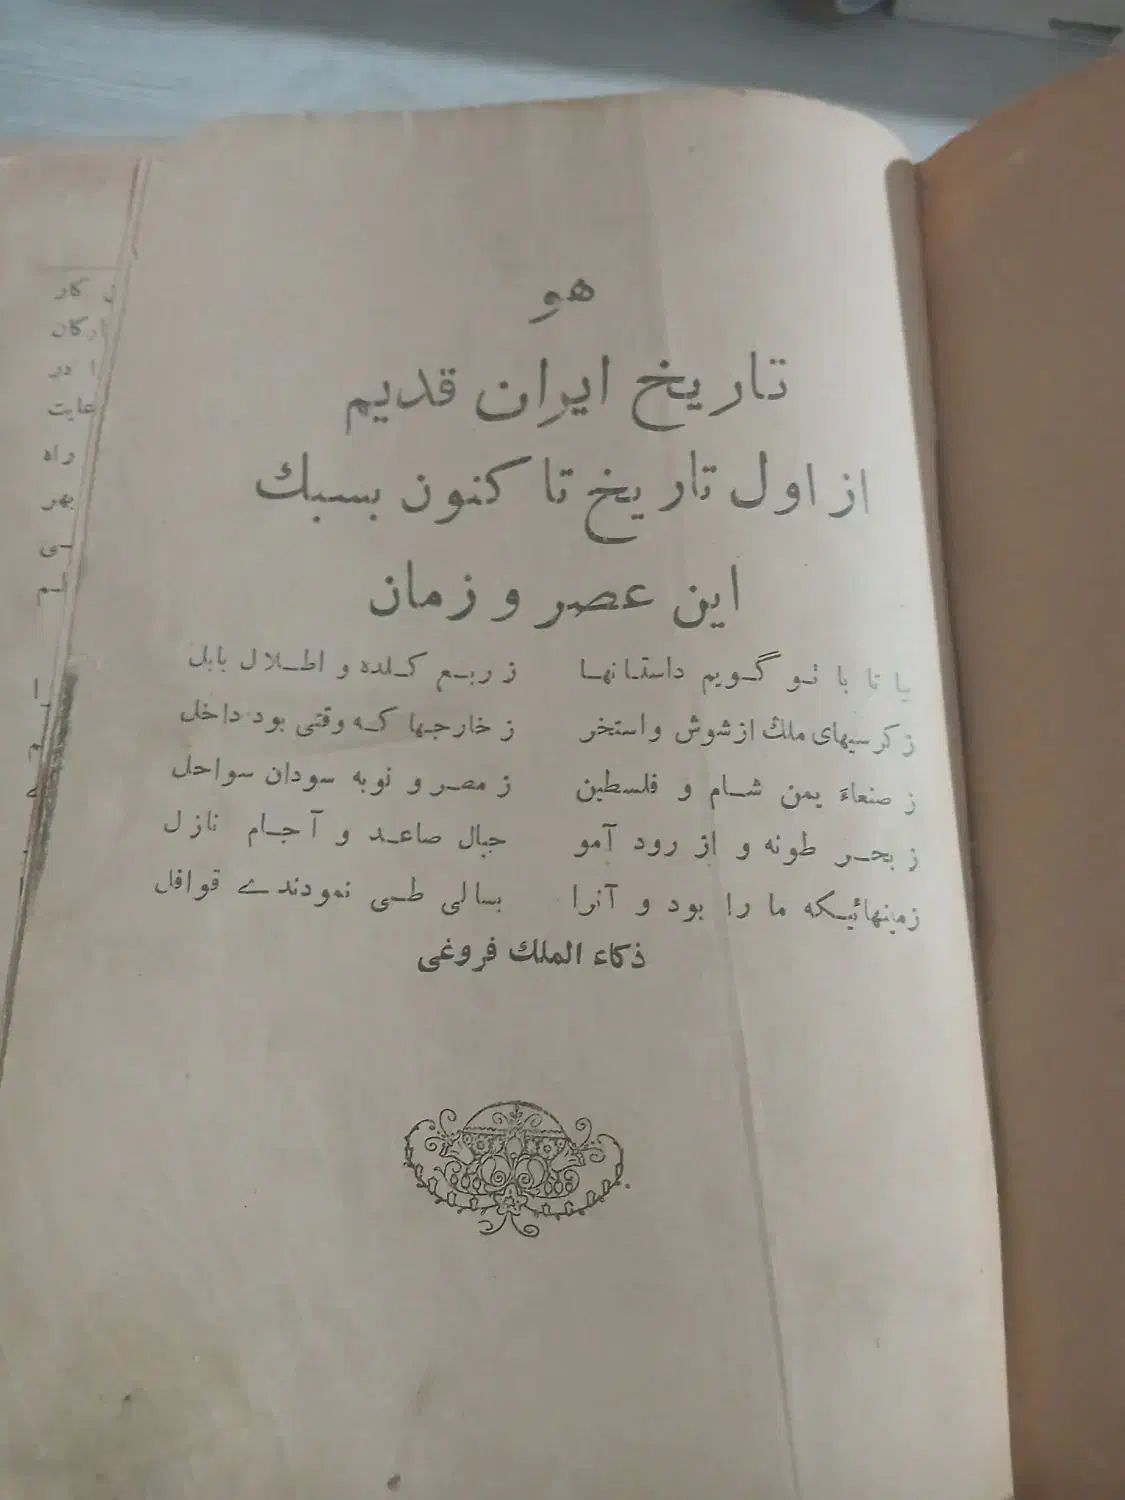 هو
تاریخ ایران قدیم
از اول تاریخ تا کنون بسبك
این عصر و زمان
بیا تا با تو گـویم داستـانهـا ز ربـع کـلده و اطـلال بابل
ز کرسیهای ملك از شوش و استخر ز خارجها کـه وقتی بود داخل
ز صنعاءَ یمن شـام و فلسطین ز مصـر و نوبه سودان سواحل
ز بحـر طونه و از رود آمو جبال صاعـد و آجـام نازل
زمینهائیـکه ما را بود و آنرا بسالی طـی نمودندے قوافل
ذکاء الملك فروغی
کار
ارکان
در
عایت
راه
بهر